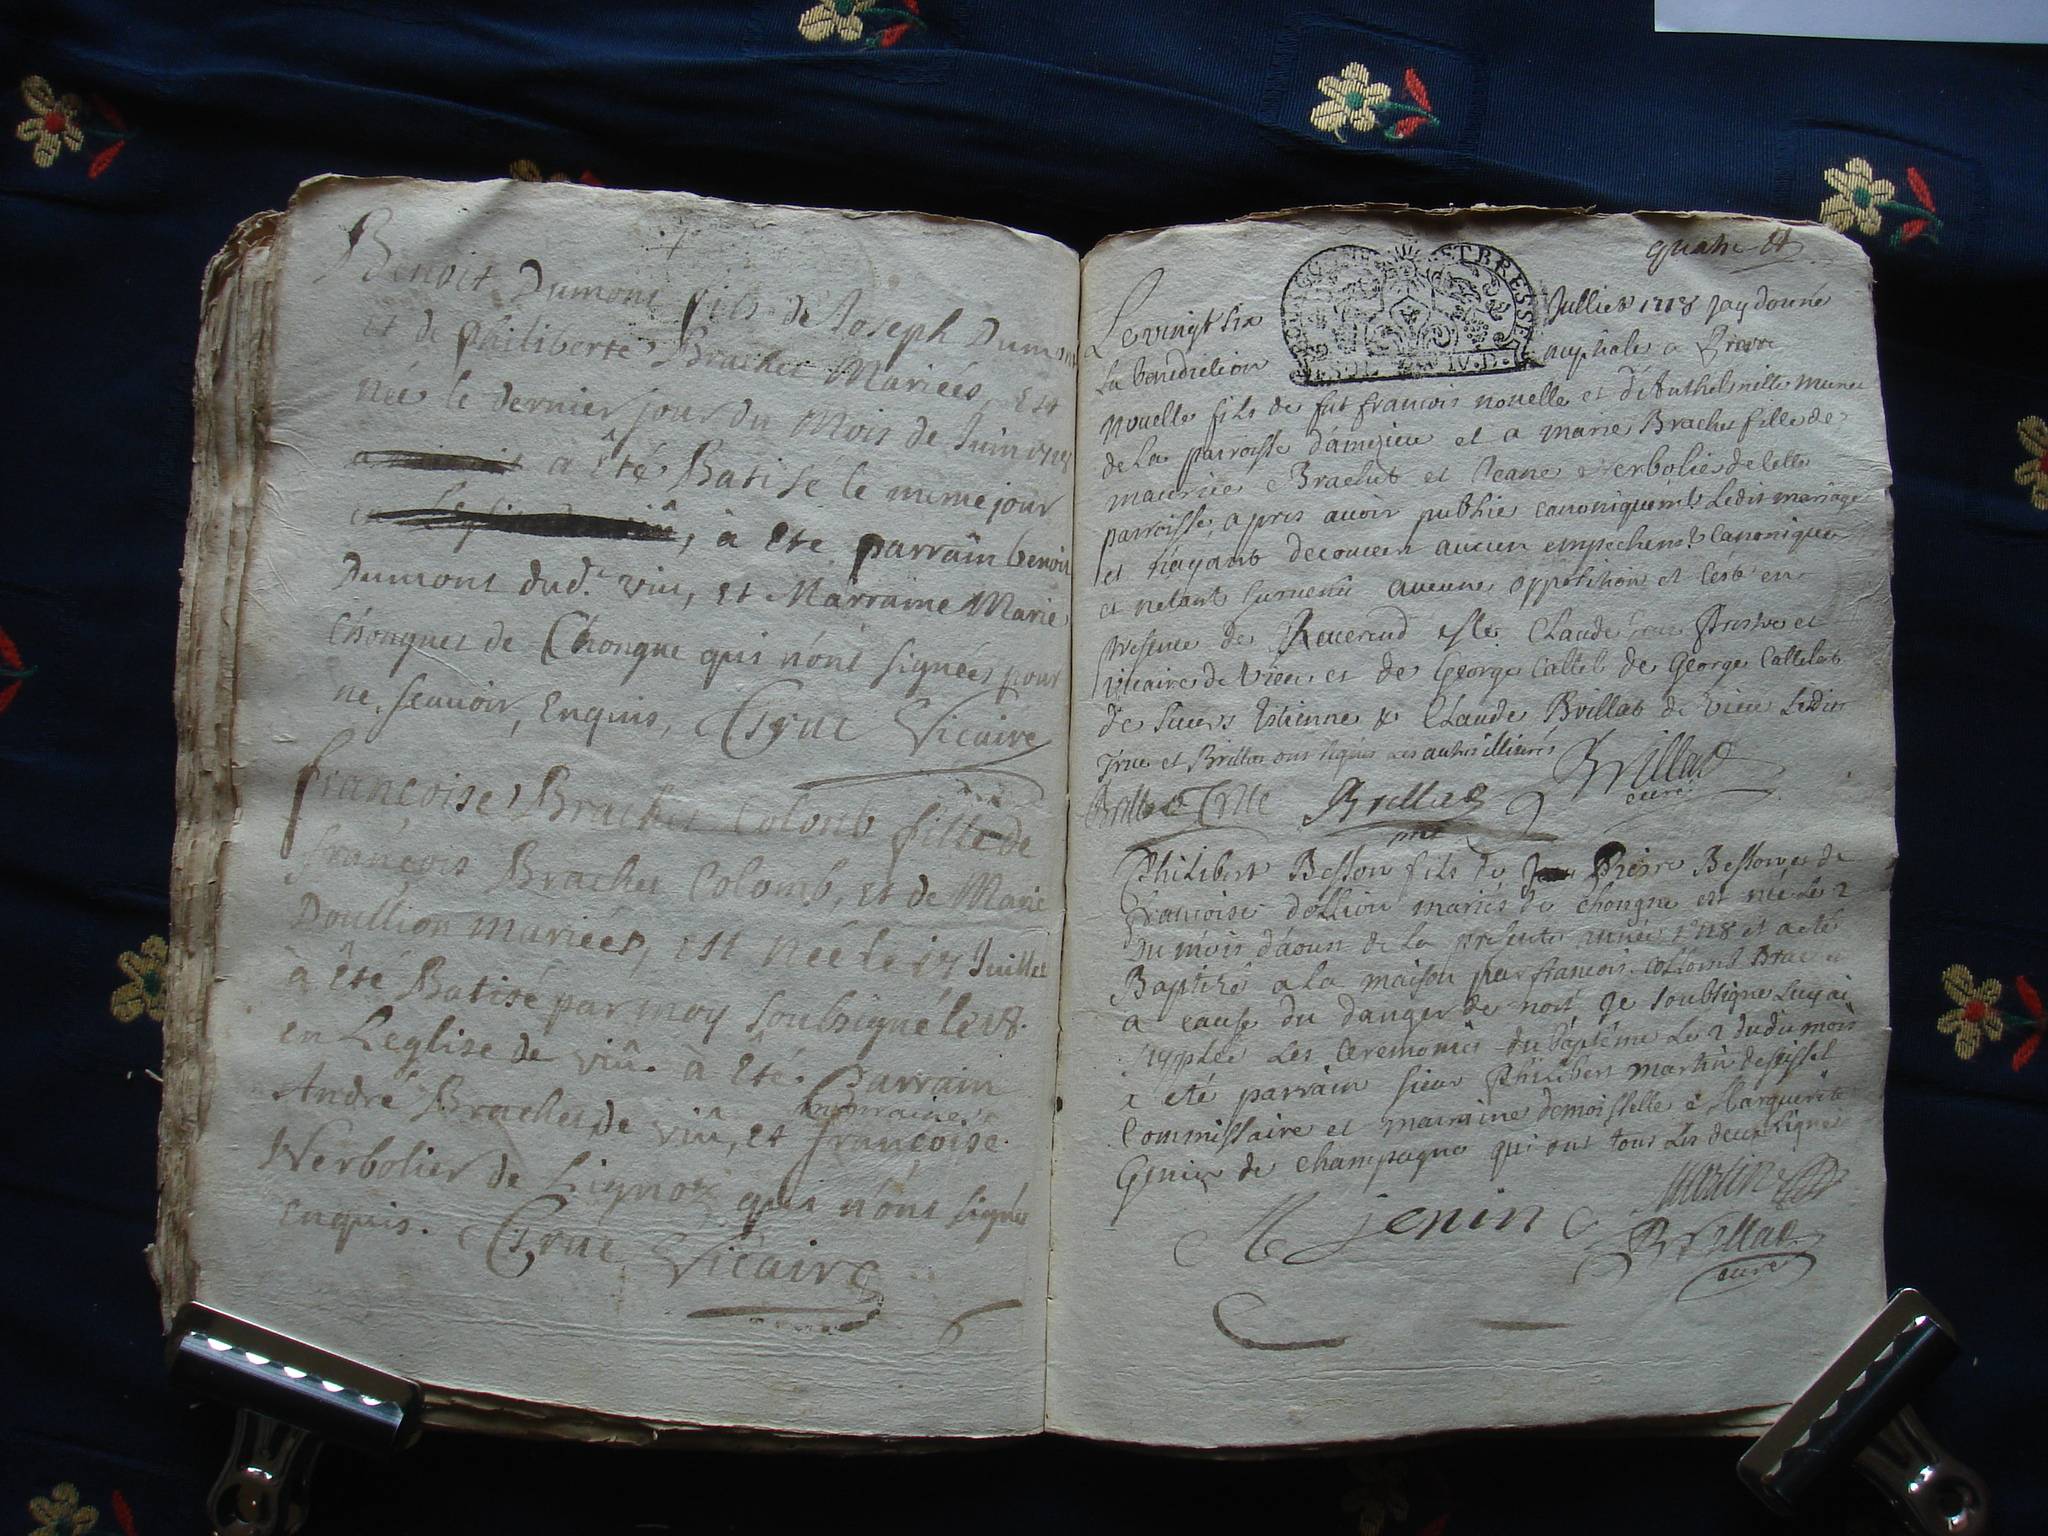 Benoit Dumont fils de Joseph Dumont
et de philiberte Brachet Mariées, Est
née le dernier jour du Mois de Juin 1718
à êté Batisé le meme jour
, à Eté parrain benoit
Dumont dud.t viu, et Marraine Marie
Chongnet de Chongne qui n'ónt signées pour
ne, scauoir, Enquis, Truc Vicaire
françoise Brachet Colomb fille de
françois Brachet Colomb, et de Marie
Doullion mariées, est néé le 17 Juillet
à êté Batisé par moy soubsigné le 18.
en Leglise de viû. à Êté. Parrain
André Brachet de viû, et marraine françoise
Verbolier de Lignoz qui n'ónt signé
enquis. Truc Vicaire
quatre
ET BRESSE
Le vingt six Jullies 1718 Jay donné
La benediction nuptiale a
nouelle fils de fut francois nouelle et d'Anthelmitte
de La parroisse dámezieu et a marie Brachet fille de
maurice Brachet et Jeane Verbolie de cette
parroisse, apres auoir publie canoniquem.t Ledit mariage
et náyant decouuert aucun empechem.t Canonique
et netant suruenu aucune oppositión et c'est en
presence de Reuerend Claude Truc et
vicaire de Vieu et de George Cattel de George Cattelat
de Estienne & Claude Brillat de vieu Ledit
Truc et Brillat ont signes les autres illitirés Brillat
curé
Brillat Truc Brillat
Philibert Besson fils de Pierre Besson et de
Francoise dollion mariés de Chongne est né Le 2
Du mois dáoust de La presente année 1718 et a eté
Baptizé a La maison par francois Collomb Brachet
a cause du danger de mort, Je soubsigne Luy ai
supplée Les Ceremonies du baptême Le 2 dudit mois
a eté parrain sieur Philibert martin de seissel
Commissaire et marraine demoisselle Marguerite
Genin de Champagne qui ont tous Les deux signé
Martin
M Jenin Brillat
curé